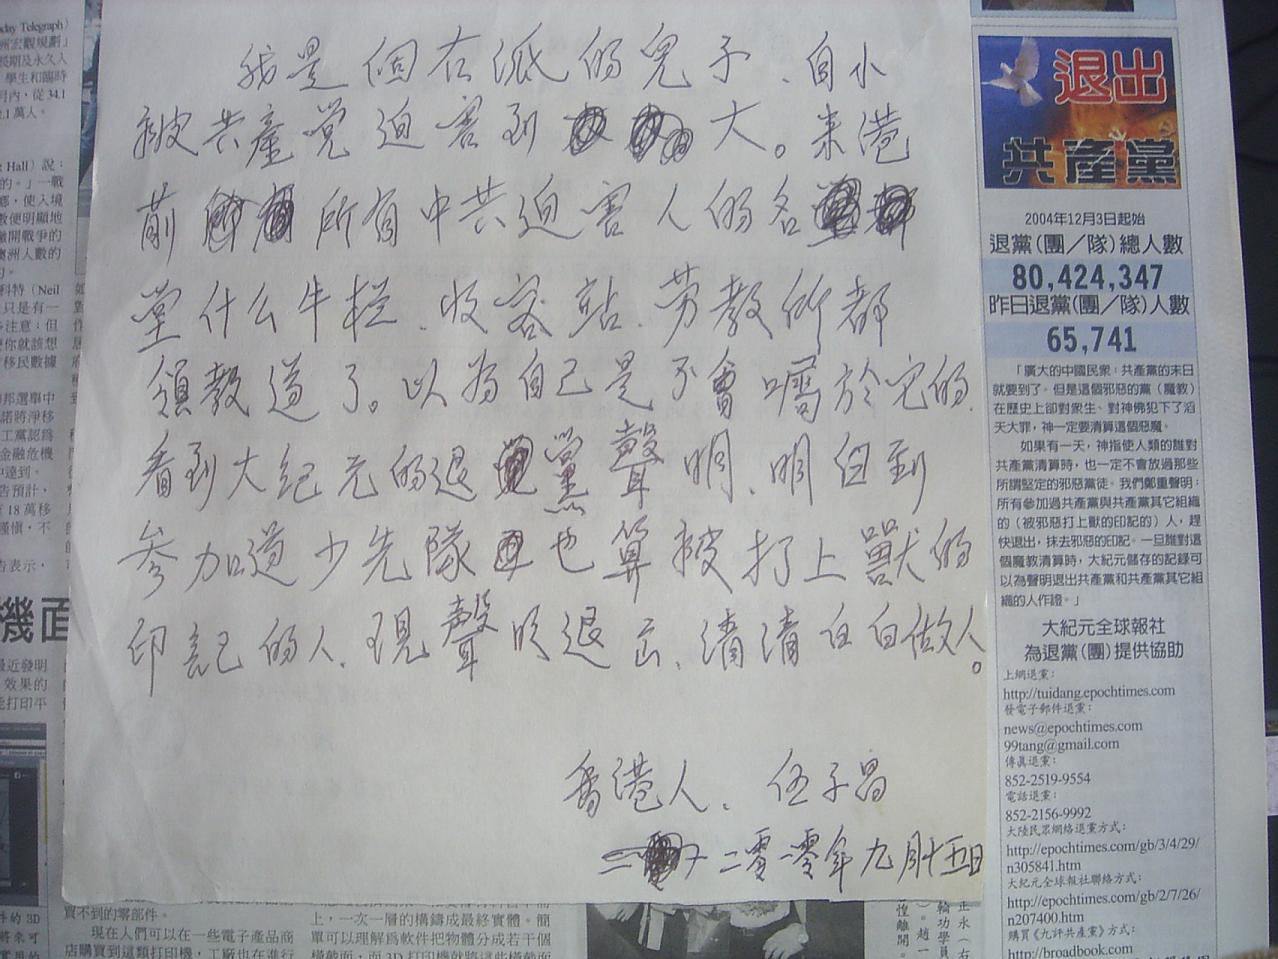 我是個右派的兒子、自小
被共產党迫害到大。来港
前所有中共迫害人的各
堂什么牛栏、收容站、劳教所都
領教過了。以為自己是不會嘱於它的、
看到大紀元的退黨聲明、明白到
参加過少先隊也算被打上獸的
印記的人、現聲明退出、清清白白做人。
香港人、伍子昌
二零一零年九月十五日
退出
共產黨
2004年12月3日起始
退黨(團/隊)總人數
80,424,347
昨日退黨(團/隊)人數
65,741
「廣大的中國民衆:共產黨的末日
就要到了。但是這個邪惡的黨(魔教)
在歷史上卻對衆生、對神佛犯下了滔
天大罪,神一定要清算這個惡魔。
如果有一天,神指使人類的誰對
共產黨清算時,也一定不會放過那些
所謂堅定的邪惡黨徒。我們鄭重聲明:
所有參加過共產黨與共產黨其它組織
的(被邪惡打上獸的印記的)人,趕
快退出,抹去邪惡的印記。一旦誰對這
個魔教清算時,大紀元儲存的記錄可
以為聲明退出共產黨和共產黨其它組
織的人作證。」
大紀元全球報社
為退黨(團)提供協助
上網退黨:
http://tuidang.epochtimes.com
發電子郵件退黨:
news@epochtimes.com
99tang@gmail.com
傳真退黨:
852-2519-9554
電話退黨:
852-2156-9992
大陸民眾網絡退黨方式:
http://epochtimes.com/gb/3/4/29/
n305841.htm
大紀元全球報社聯絡方式:
http://epochtimes.com/gb/2/7/26/
n207400.htm
購買《九評共產黨》方式:
http://broadbook.com
day Telegraph)
洲宏觀規劃」
長期及永久人
學生和臨時
月內,從 34.1
2.1 萬人。
Hall)說:
的。」一戰
使入境
數便明顯地
撇開戰爭的
澳洲人數的
科特(Neil
只是有一
注意:但
你就該想
移民數據
邦選舉中
諾將淨移
工黨認爲
金融危機
達到。
告預計,
18 萬移
謹慎,不
告表示,
機面
最近發明
效果的
能打印平
買不到的零部件。
現在人們可以在一些電子產品商
店購買到這類打印機,工廠也在進行
上,一次一層的構鑄成最終實體。簡
單可以理解為軟件把物體分成若干個